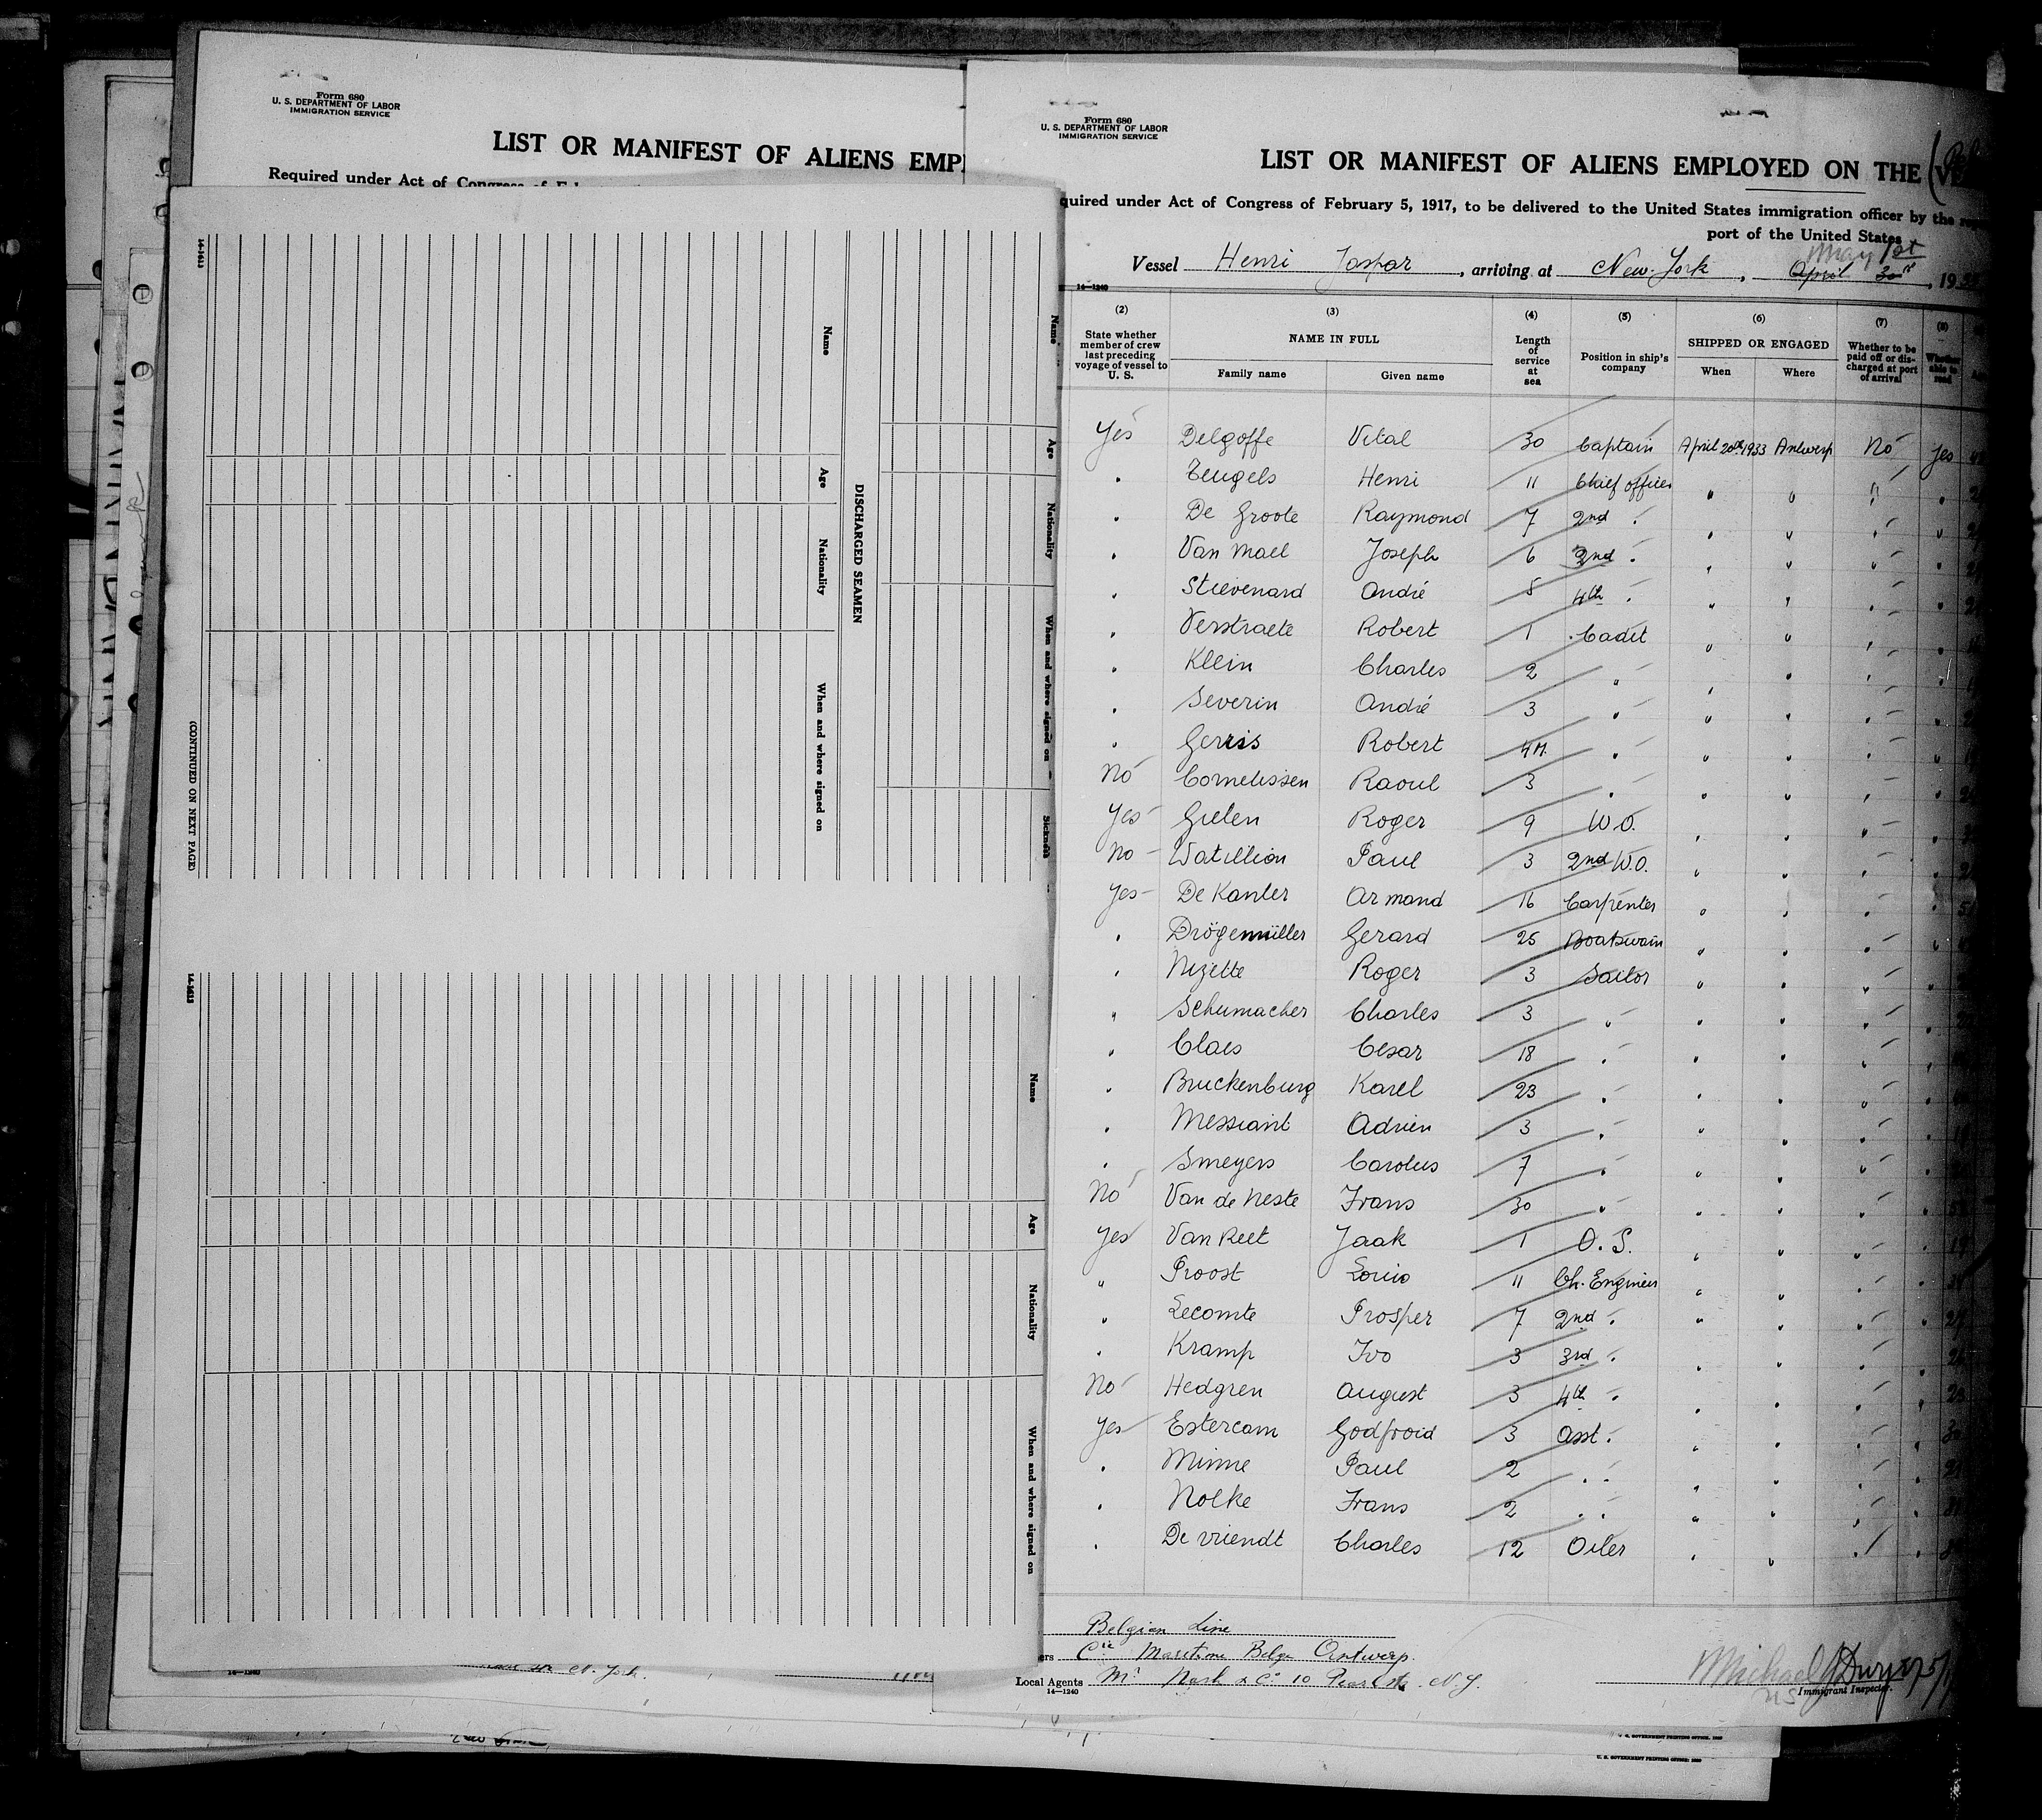 Form 680
U. S. DEPARTMENT OF LABOR
IMMIGRATION SERVICE
LIST OR MANIFEST OF ALIENS EMP
Required under Act of Congress of
14-1613
Name
Age
Nationality
When and where signed on
Sickness
DISCHARGED SEAMEN
Name
Age
Nationality
When and where signed on
(CONTINUED ON NEXT PAGE)
14-1613
Name
Age
Nationality
When and where signed on
14—1240
N. York.
Form 680
U. S. DEPARTMENT OF LABOR
IMMIGRATION SERVICE
LIST OR MANIFEST OF ALIENS EMPLOYED ON THE
quired under Act of Congress of February 5, 1917, to be delivered to the United States immigration officer by the
port of the United States
May 1st
Vessel Henri Jaspar, arriving at New-York, April 30th, 19
14—1240
(2) State whether member of crew last preceding voyage of vessel to U. S.
(3) NAME IN FULL
Family name Given name
(4) Length of service at sea
(5) Position in ship's company
(6) SHIPPED OR ENGAGED
When Where
(7) Whether to be paid off or discharged at port of arrival
(8) Whether able to read
Yes Delgoffe Vital 30 Captain April 20th 1933 Antwerp No Yes
" Teugels Henri 11 Chief officer " " " "
" De Groote Raymond 7 2nd " " " " "
" Van Mael Joseph 6 2nd " " " " "
" Stievenard André 5 4th " " " " "
" Verstraete Robert 1 Cadet " " " "
" Klein Charles 2 " " " " "
" Severin André 3 " " " " "
" Gerris Robert 4M. " " " " "
No Cornelissen Raoul 3 " " " " "
Yes Gielen Roger 9 W.O. " " " "
No Watillion Paul 3 2nd W.O. " " " "
Yes De Kanter Armand 16 Carpenter " " " "
" Drögemüller Gerard 25 Boatswain " " " "
" Nizette Roger 3 Sailor " " " "
" Schumacher Charles 3 " " " " "
" Claes Cesar 18 " " " " "
" Bruckenburg Karel 23 " " " " "
" Messiant Adrien 3 " " " " "
" Smeyers Carolus 7 " " " " "
No Van de Neste Frans 30 " " " " "
Yes Van Reet Jaak 1 O.S. " " " "
" Proost Louis 11 Ch. Engineer " " " "
" Lecomte Prosper 7 2nd " " " " "
" Kramp Ivo 3 3rd " " " " "
No Hedgren August 3 4th " " " " "
Yes Estercam Godfroid 3 Asst. " " " " "
" Minne Paul 2 " " " " " "
" Nolke Frans 2 " " " " " "
" De Vriendt Charles 12 Oiler " " " "
Belgian Line
ers Cie Maritime Belge Antwerp.
Local Agents Mr Nash & Co 10 Pearl str. N.Y.
14—1240
Michael J Dwyer
Immigrant Inspector.
U. S. GOVERNMENT PRINTING OFFICE
U. S. GOVERNMENT PRINTING OFFICE